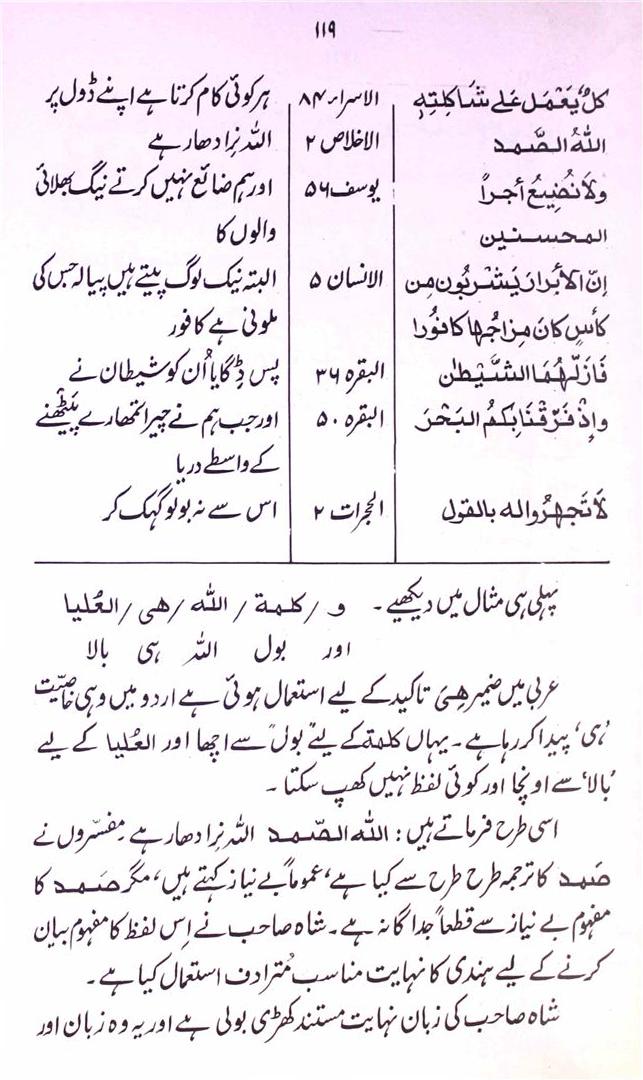 ۱۱۹
كلٌ يَعْمَل عَلے شَاكِلتِهٖ الاسراء ۸۴ ہر کوئی کام کرتا ہے اپنے ڈول پر
اللهُ الصَّمد الاخلاص ۲ اللہ نِرادھار ہے
ولا نُضِيعُ أجراً يوسف ۵۶ اور ہم ضائع نہیں کرتے نیگ بھلائی
المحسنين والوں کا
اِنّ الأبرارَ يَشربُون مِن الانسان ۵ البتہ نیک لوگ پیتے ہیں پیالہ جس کی
كأسٍ كانَ مِزاجُها كافُورا ملونی ہے کافور
فَازلّهُمَا الشَّيْطٰن البقره ۳۶ پس ڈِگایا اُن کو شیطان نے
وإذْ فَرَقْنَا بِكمُ البَحْرَ البقره ۵۰ اور جب ہم نے چیرا تمھارے پَیٹھنے
کے واسطے دریا
لاَ تَجهرُوا له بالقول الحجرات ۲ اس سے نہ بولو گہک کر
پہلی ہی مثال میں دیکھیے۔ و / كلمة / الله / هى / العُليا
اور بول اللہ ہی بالا
عربی میں ضمیر هِیَ تاکید کے لیے استعمال ہوئی ہے اردو میں وہی خاصیّت
'ہی' پیدا کر رہا ہے۔ یہاں کلمة کے لیے 'بول' سے اچھا اور العُلیا کے لیے
'بالا' سے اونچا اور کوئی لفظ نہیں کھپ سکتا۔
اسی طرح فرماتے ہیں: اللہ الصّمد اللہ نِرادھار ہے۔ مفسّروں نے
صَمد کا ترجمہ طرح طرح سے کیا ہے، عموماً بے نیاز کہتے ہیں، مگر صَمد کا
مفہوم بے نیاز سے قطعاً جداگانہ ہے۔ شاہ صاحب نے اِس لفظ کا مفہوم بیان
کرنے کے لیے ہندی کا نہایت مناسب مُترادف استعمال کیا ہے۔
شاہ صاحب کی زبان نہایت مستند کھڑی بولی ہے اور یہ وہ زبان اور